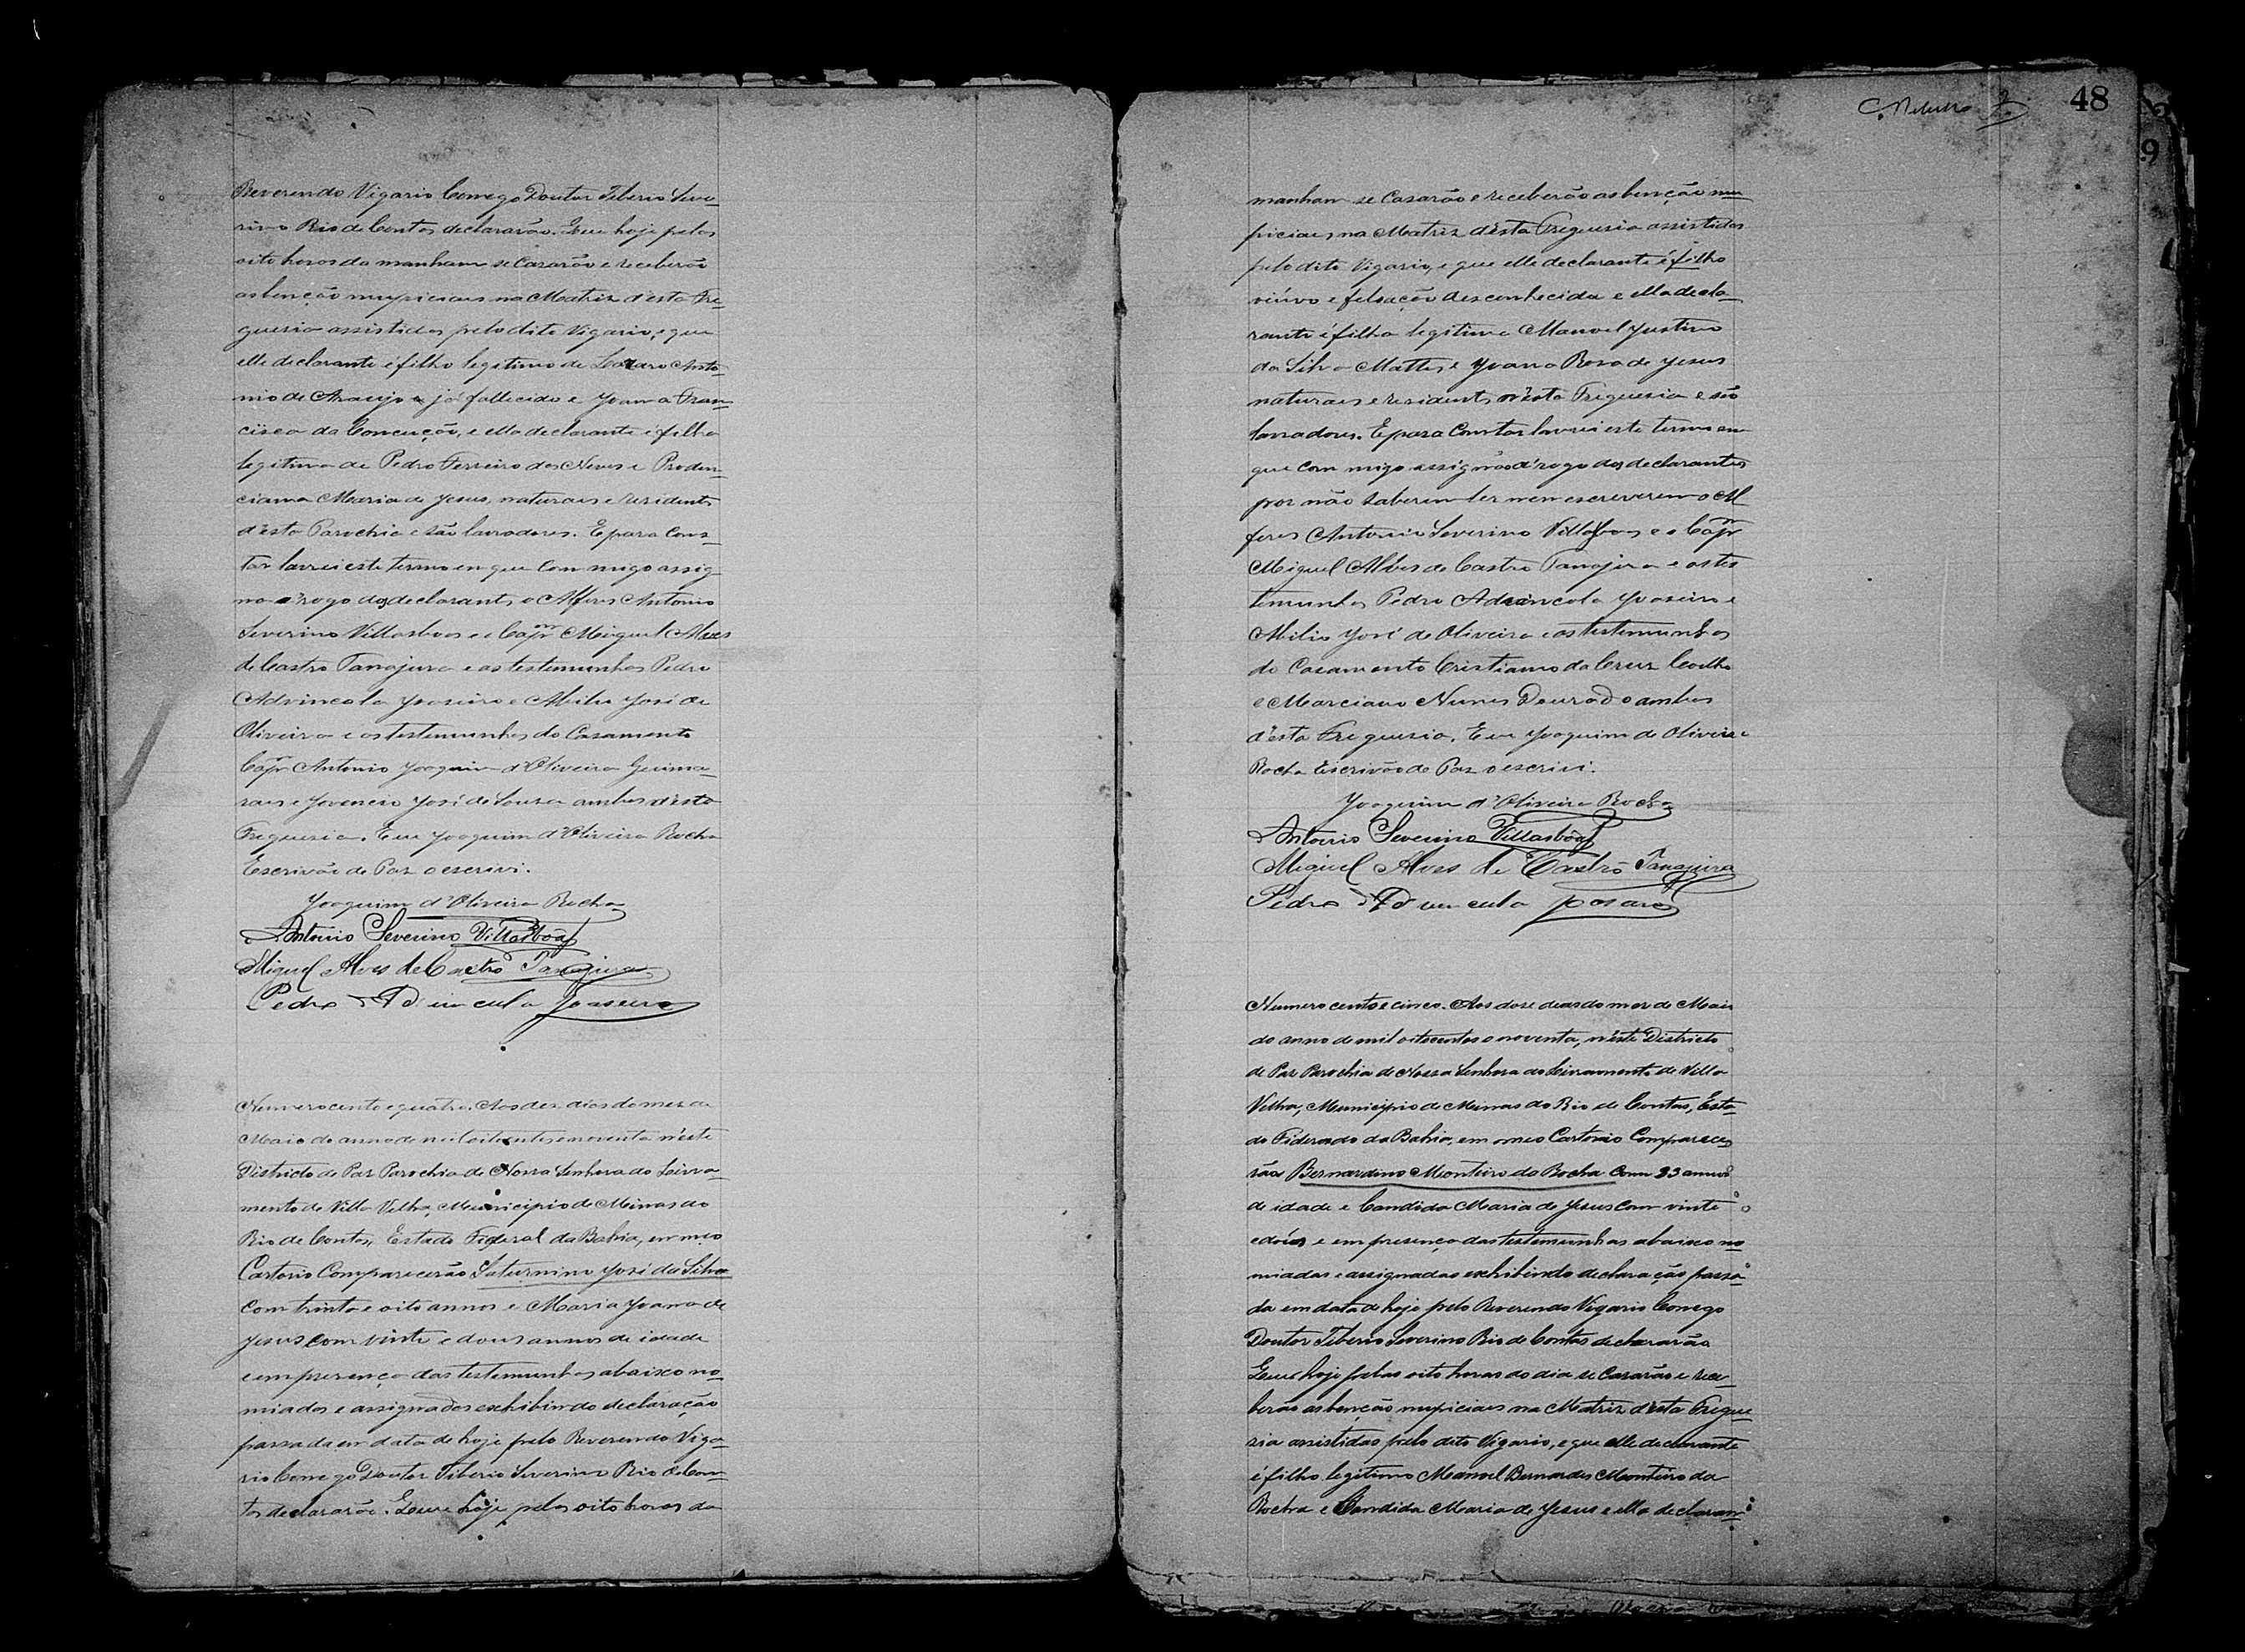 Reverendo Vigario Conego Doutor Tiberio Seve-
rino Rio de Contas declararão. Que hoje pelas
oito horas da manham se Casarão e receberão
as benção nupiciaes na Matriz d'esta Fre-
guesia assistidos pelo dito Vigario, e que
elle declarante é filho legitimo de Lazaro Anto-
nio de Araujo já fallecido e Joanna Fran-
cisca da Conceição, e ella declarante é filha
legitima de Pedro Ferreira das Neves e Pruden-
ciana Maria de Jesus, naturaes e residents
d'esta Parochia e são lavradores. E para Cons-
tar lavrei este termo em que Com migo assig
na a rogo dos declarants o Alferes Antonio
Severino Villasboas e o Capm Miguel Alves
de Castro Tanajura e as testemunhas Pedro
Advincola Joaseiro e Abilio José de
Oliveira e as testemunhas do Casamento
Capm Antonio Joaquim d'Oliveira Guima-
raes e Jovencio José de Souza ambos d'esta
Freguesia. E eu Joaquim d'Oliveira Rocha
Escrivão de Paz o escrivi.
Joaquim d'Oliveira Rocha
Antonio Severino Villasbôas
Miguel Alves de Castro Tanajura
Pedro Advincula Joaseiro
Numero cento e quatro. Aos dez dias do mez de
Maio do anno de mil oitocentos e noventa n'este
Districto de Paz Parochia de Nossa Senhora do Livra-
mento de Villa Velha, Municipio de Minas do
Rio de Contas, Estado Federal da Bahia, em meo
Cartorio Comparecerão Saturnino José da Silva
Com trinta e oito annos e Maria Joanna de
Jesus com vinte e dous annos de idade
e em presença das testemunhas abaixo no-
miadas e assignadas exhibindo declaração
passada em data de hoje pelo Reverendo Viga-
rio Conego Doutor Tiberio Severino Rio de Con-
tas declararão. Que hoje pelas oito horas da
48
9
manham se Casarão e receberão as benção nu-
piciaes na Matriz d'esta Freguesia assistidos
pelo dito Vigario, e que elle declarante é filho
viúvo e feleação desconhecida e ella decla-
rante é filha legitima Manoel Justino
da Silva Mattos e Joana Rosa de Jesus
naturaes e residents n'esta Freguesia e são
lavradores. E para Constar lavrei este termo em
que com migo assignão a rogo dos declarantes
por não saberem ler nem escreverem o Al
feres Antonio Severino Villasboas e o Capm
Miguel Alves de Castro Tanajura e as tes
temunhas Pedro Advincola Joaseiro e
Abilio José de Oliveira e as testemunhas
do Casamento Cristiano da Cruz Coelho
e Marciano Nunes Dourado ambos
d'esta Freguesia. E eu Joaquim de Oliveira
Rocha Escrivão de Paz o escrivi.
Joaquim d'Oliveira Rocha
Antonio Severino Villasbôas
Miguel Alves de Castro Tanajura
Pedro Advincula
Numero cento e cinco. Aos dose dias do mez de Maio
do anno de mil oitocentos e noventa, n'este Districto
de Paz Parochia de Nossa Senhora do Livramento de Villa
Velha, Municipio de Minas do Rio de Contas, Esta-
do Federado da Bahia, em meo Cartorio Comparece-
rão Bernardino Monteiro da Rocha Com 23 annos
de idade e Candida Maria de Jesus com vinte
e dóis e em presença das testemunhas abaixo no-
miadas e assignadas exhibindo declaração passa-
da em data de hoje pelo Reverendo Vigario Conego
Doutor Tiberio Severino Rio de Contas declararão
Que hoje pelas oito horas do dia se Casarão e rece-
berão as benção nupiciaes na Matriz d'esta Fregue-
sia assistidos pelo dito Vigario, e que elle declarante
é filho legitimo Manoel Bernardes Monteiro da
Rocha e Candida Maria de Jesus e ella declaran-